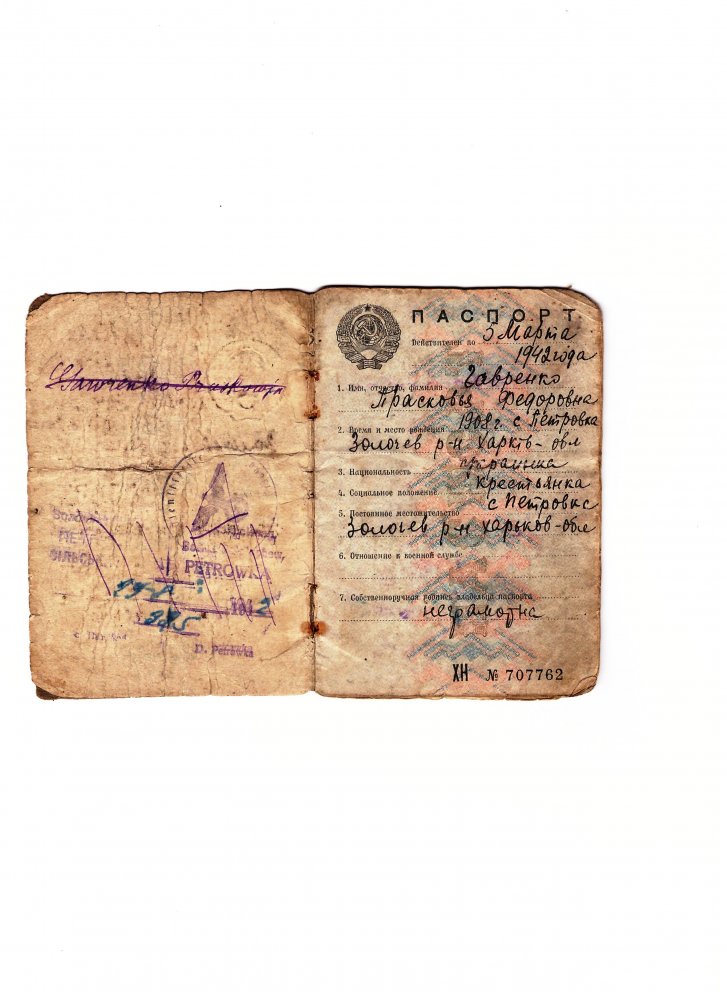 Gawrenko Praskowja
PETROWKA
194 2
385
D. Petrowka
ПАСПОРТ
Действителен по 5 Марта
1942 года
Гавренко
1. Имя, отчество, фамилия
Прасковья Федоровна
2. Время и место рождения 1908 г. с Петровка
Золочев р-н Харьв- обл
3. Национальность украинка
4. Социальное положение крестьянка
с Петровка
5. Постоянное местожительство
Золочев р-н Харьков-обл
6. Отношение к военной службе
7. Собственноручная подпись владельца паспорта
неграмотна
ХН № 707762